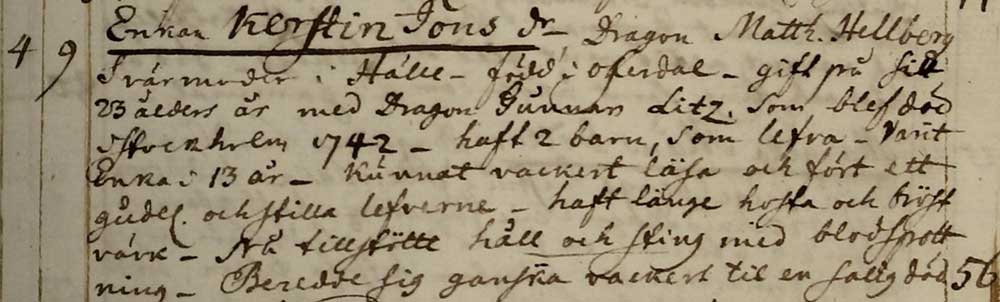 4 9 Enkan Kerstin Jons dr Dragon Matth. Hellberg
Svärmoder i Hälle - född i Oferdal - gift på sitt
23 ålders år med Dragon Gunnar Litz. Som blef död
i Stockholm 1742 - haft 2 barn, som lefva - Varit
Enka i 13 år - Kunnat vackert läsa och fört ett
gudel. och stilla lefverne - haft länge hosta och bröst
värk - Nu tillstötte håll och sting med blodspott
ning - Beredde sig ganska vackert til en salig död 56